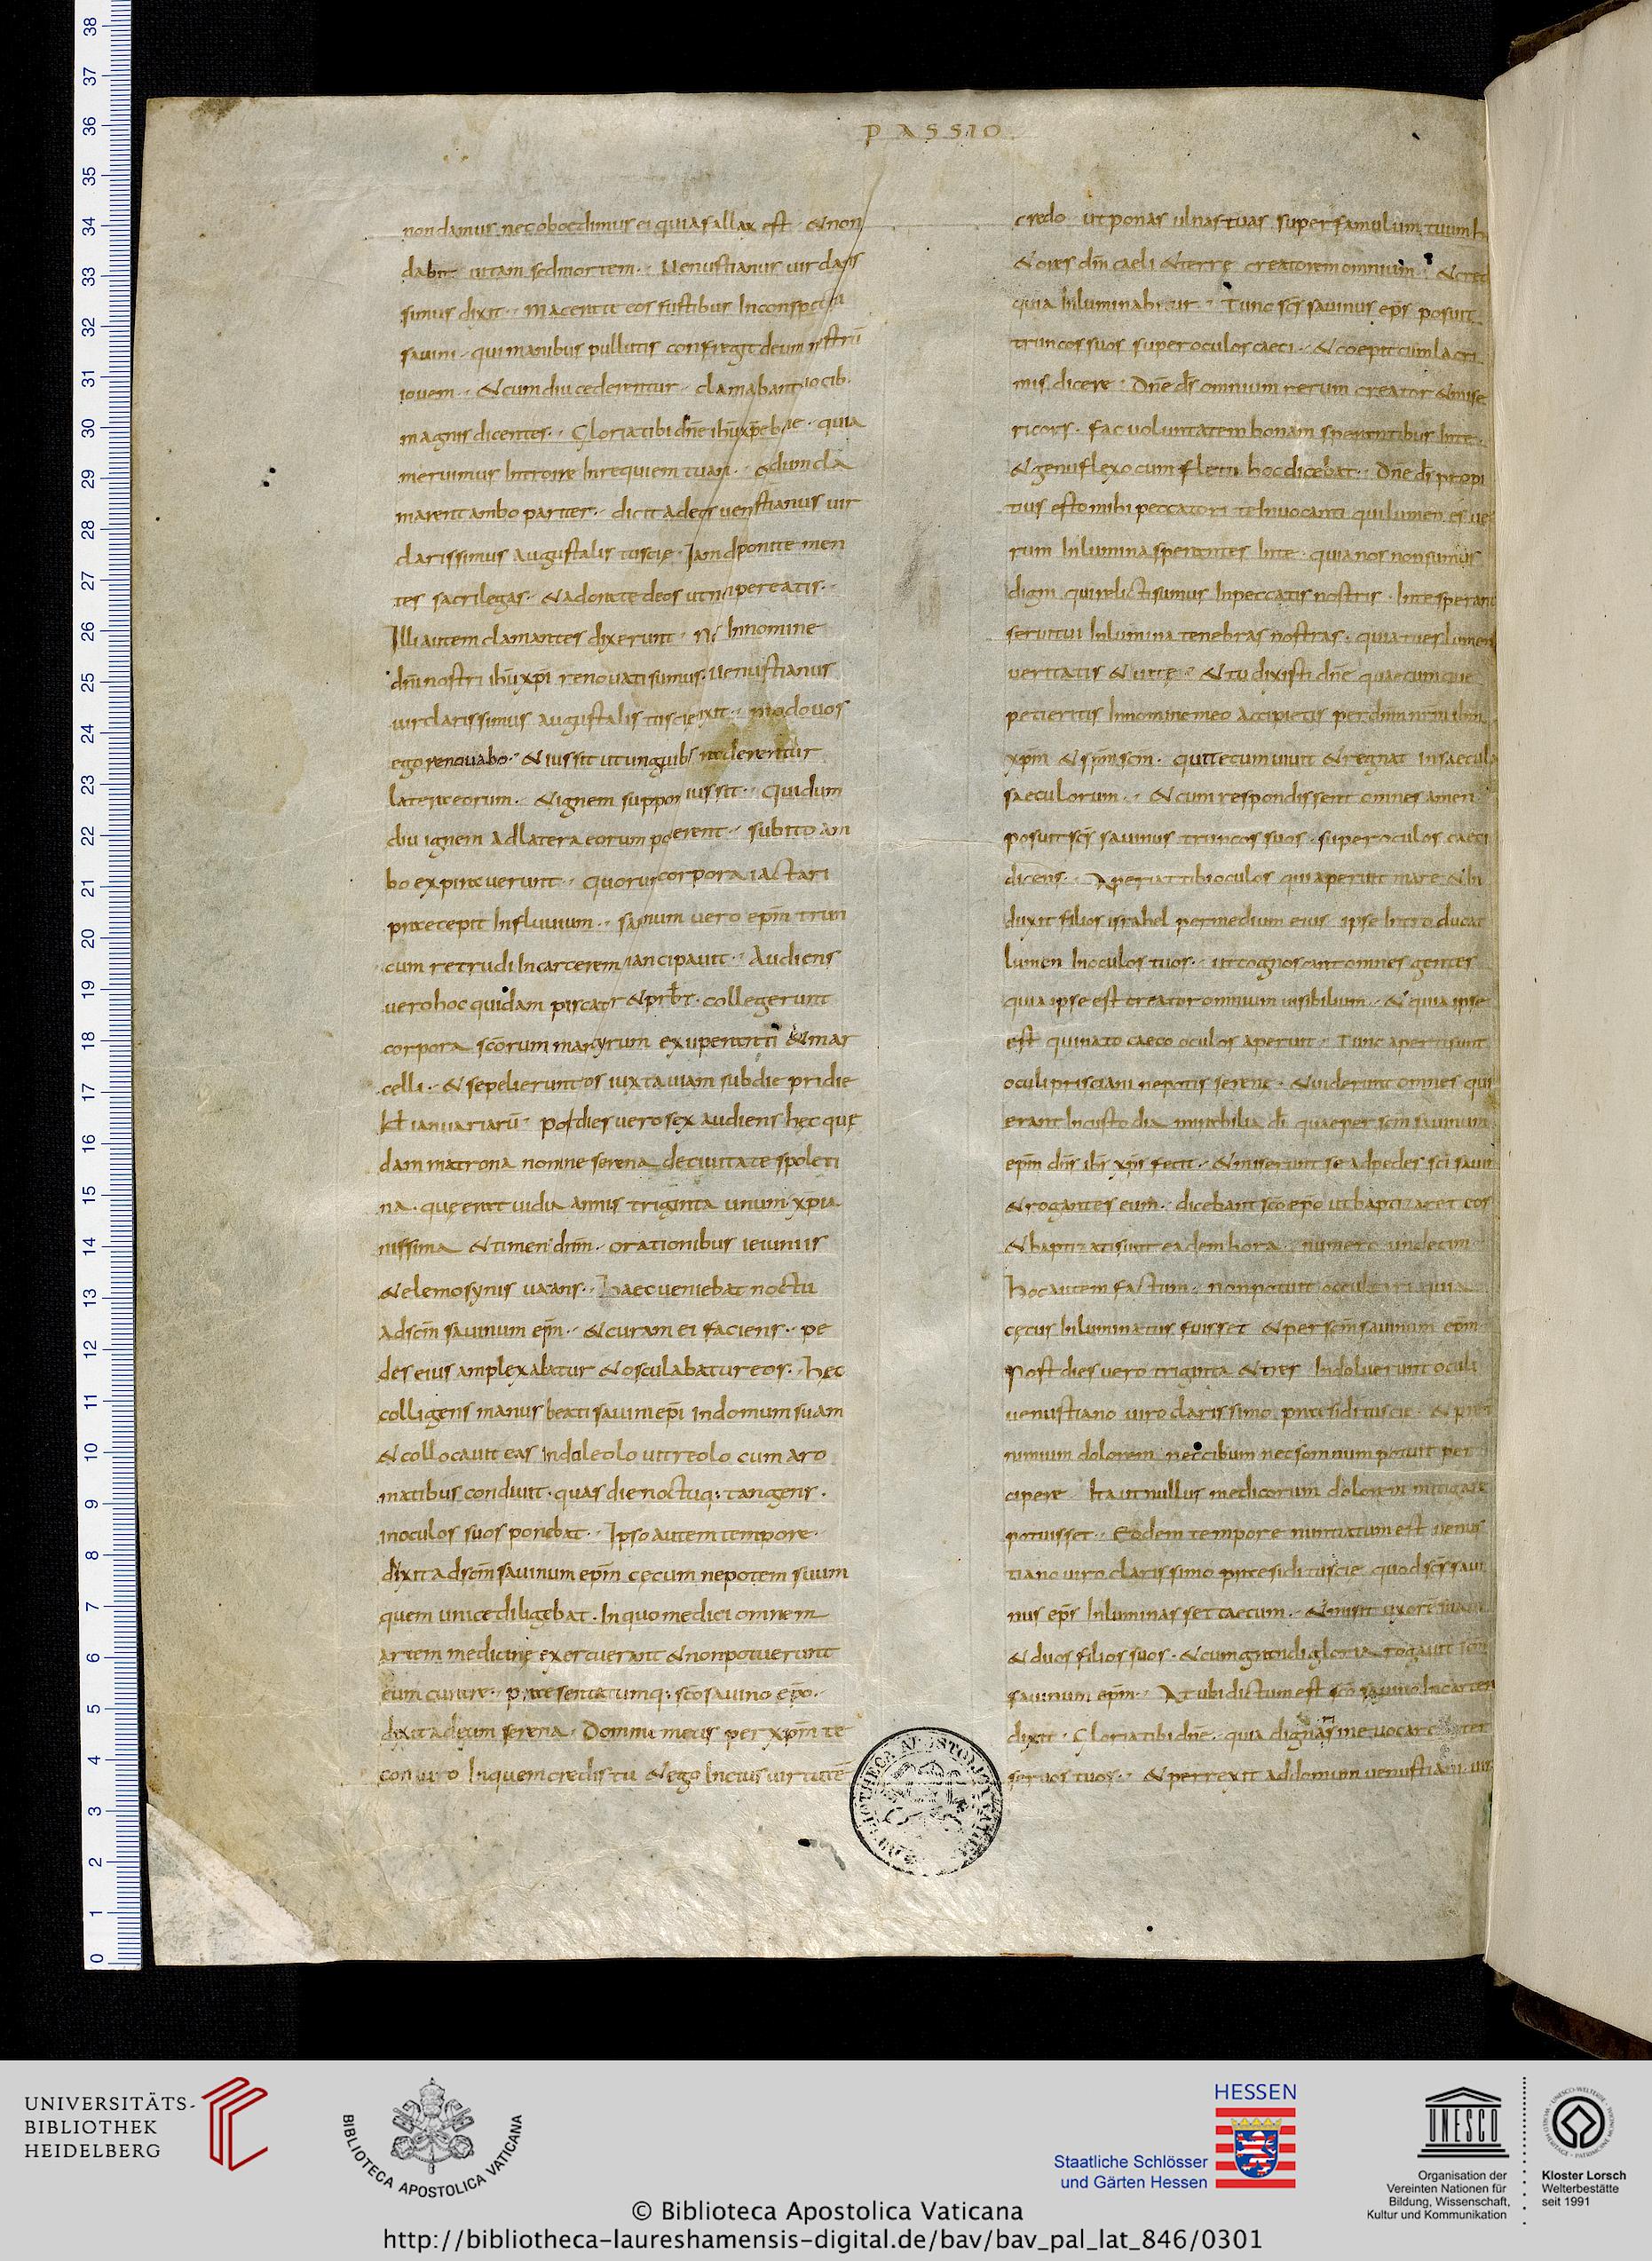 PASSIO
non damus nec oboedimus ei quia fallax est · & non
dabit uitam sed mortem · Uenustianus uir claris
simus dixit · Macerate eos fustibus In conspectu
sauini · qui manibus pullutis confregit deum nostrū
iouem · & cum diu cederentur · clamabant uocib·
magnis dicentes · Gloria tibi dn̄e ih̄u xp̄e · quia
meruimus Introire In requiem tuam · & dum cla
marent ambo pariter · dicit ad eos uenustianus uir
clarissimus augustalis tuscię · Iam deponite men
tes sacrilegas · & adorate deos ut non pereatis ·
Illi autem clamantes dixerunt · Nos In nomine
dn̄i nostri ih̄u xp̄i renouati sumus · uenustianus
uir clarissimus augustalis tuscię dixit · modo uos
ego renouabo · & iussit ut unguib· raderentur
latera eorum · & ignem supponi iussit · Qui dum
diu ignem ad latera eorum posuerent · subito am
bo expirauerunt · Quorum corpora iactari
praecepit In fluuium · sauinum uero ep̄m trun
cum retrudi In carcerem mancipauit · Audiens
uero hoc quidam piscator & prb̄r · collegerunt
corpora sc̄orum martyrum exuperantii & mar
celli · & sepelierunt eos iuxta uiam sub die pridie
kł ianuariarū · Post dies uero sex audiens hęc quę
dam matrona nomine serena de ciuitate spoleti
na · quę erat uidua annis triginta unum · xp̄ia
nissima & timens dn̄m · orationibus ieiuniis
& elemosynis uacans · Haec ueniebat noctu
ad sc̄m sauinum ep̄m · & curam ei faciens · pe
des eius amplexabatur & osculabatur eos · Hęc
colligens manus beati sauini ep̄i In domum suam
& collocauit eas In doleolo uitreolo cum aro
matibus condiuit · quas die noctuq; tangens ·
in oculos suos ponebat · Ipso autem tempore ·
dixit ad sc̄m sauinum ep̄m cęcum nepotem suum
quem unice diligebat · In quo medici omnem
artem medicinę exercuerant & non potuerunt
eum curare · praesentatumq; sc̄o sauino ep̄o ·
dixit ad eum serena · Domine meus per xp̄m te
coniuro In quem credis tu & ego In cuius uirtutē
credo ut ponas ulnas tuas super famulum tuum
& ores dn̄m caeli & terrę creatorem omnium · & cred
quia Inluminabitur · Tunc sc̄s sauinus ep̄s posuit
truncos suos super oculos caeci · & coepit cum lacri
mis dicere · Dn̄e d̄s omnium rerum creator & mise
ricors · fac uoluntatem bonam sperantibus In te ·
& genu flexo cum fletu hoc dicebat · Dn̄e d̄s propi
tius esto mihi peccatori te Inuocanti qui lumen es ue
rum Inlumina sperantes In te · quia nos non sumus
digni qui relicti sumus In peccatis nostris · In te sperant
serui tui Inlumina tenebras nostras · quia tu es lumen
ueritatis & uitę · & tu dixisti dn̄e quaecumque
petieritis In nomine meo accipietis per dn̄m nr̄m ih̄m
xp̄m & sp̄m sc̄m · qui tecum uiuit & regnat in saecula
saeculorum · & cum respondissent omnes amen
posuit sc̄s sauinus truncos suos · super oculos caeci
dicens · Aperiat tibi oculos qui aperuit mare & In
duxit filios israhel per medium eius · ipse Introducat
lumen In oculos tuos · ut cognoscant omnes gentes
quia ipse est creator omnium uisibilium · & quia ipse
est qui nato caeco oculos aperuit · Tunc aperti sunt
oculi prisciani nepotis serenę · & uiderunt omnes qui
erant In custodia mirabilia d̄i quae per sc̄m sauinum
ep̄m dn̄s ih̄s xp̄s fecit · & miserunt se ad pedes sc̄i sauini
& rogantes eum · dicebant sc̄o ep̄o ut baptizaret eos
& baptizati sunt eadem hora · numero undecim
Hoc autem factum · non potuit occultari quia
cęcus Inluminatus fuisset & per sc̄m sauinum ep̄m ·
Post dies uero triginta & tres Indoluerunt oculi
uenustiano uiro clarissimo praesidi tuscię ·
nimium dolorem nec cibum nec somnum potuit per
cipere Ita ut nullus medicorum dolorem mitigare
potuisset · Eodem tempore nuntiatum est uenus
tiano uiro clarissimo praesidi tuscię quod sc̄s saui
nus ep̄s Inluminasset caecum · & misit uxorē suam
& duos filios suos · & cum grandi gloria rogauit sc̄m
sauinum ep̄m · At ubi dictum est sc̄o sauino In carcere
dixit · Gloria tibi dn̄e · quia dignaris me uocare Inter
seruos tuos · & perrexit ad domum uenustiani uiri
BIBLIOTHECA APOSTOLICA VATICANA
38
37
36
35
34
33
32
31
30
29
28
27
26
25
24
23
22
21
20
19
18
17
16
15
14
13
12
11
10
9
8
7
6
5
4
3
2
1
0
UNIVERSITÄTS-
BIBLIOTHEK
HEIDELBERG
BIBLIOTECA APOSTOLICA VATICANA
HESSEN
Staatliche Schlösser
und Gärten Hessen
UNESCO
Organisation der
Vereinten Nationen für
Bildung, Wissenschaft,
Kultur und Kommunikation
Kloster Lorsch
Welterbestätte
seit 1991
© Biblioteca Apostolica Vaticana
http://bibliotheca-laureshamensis-digital.de/bav/bav_pal_lat_846/0301